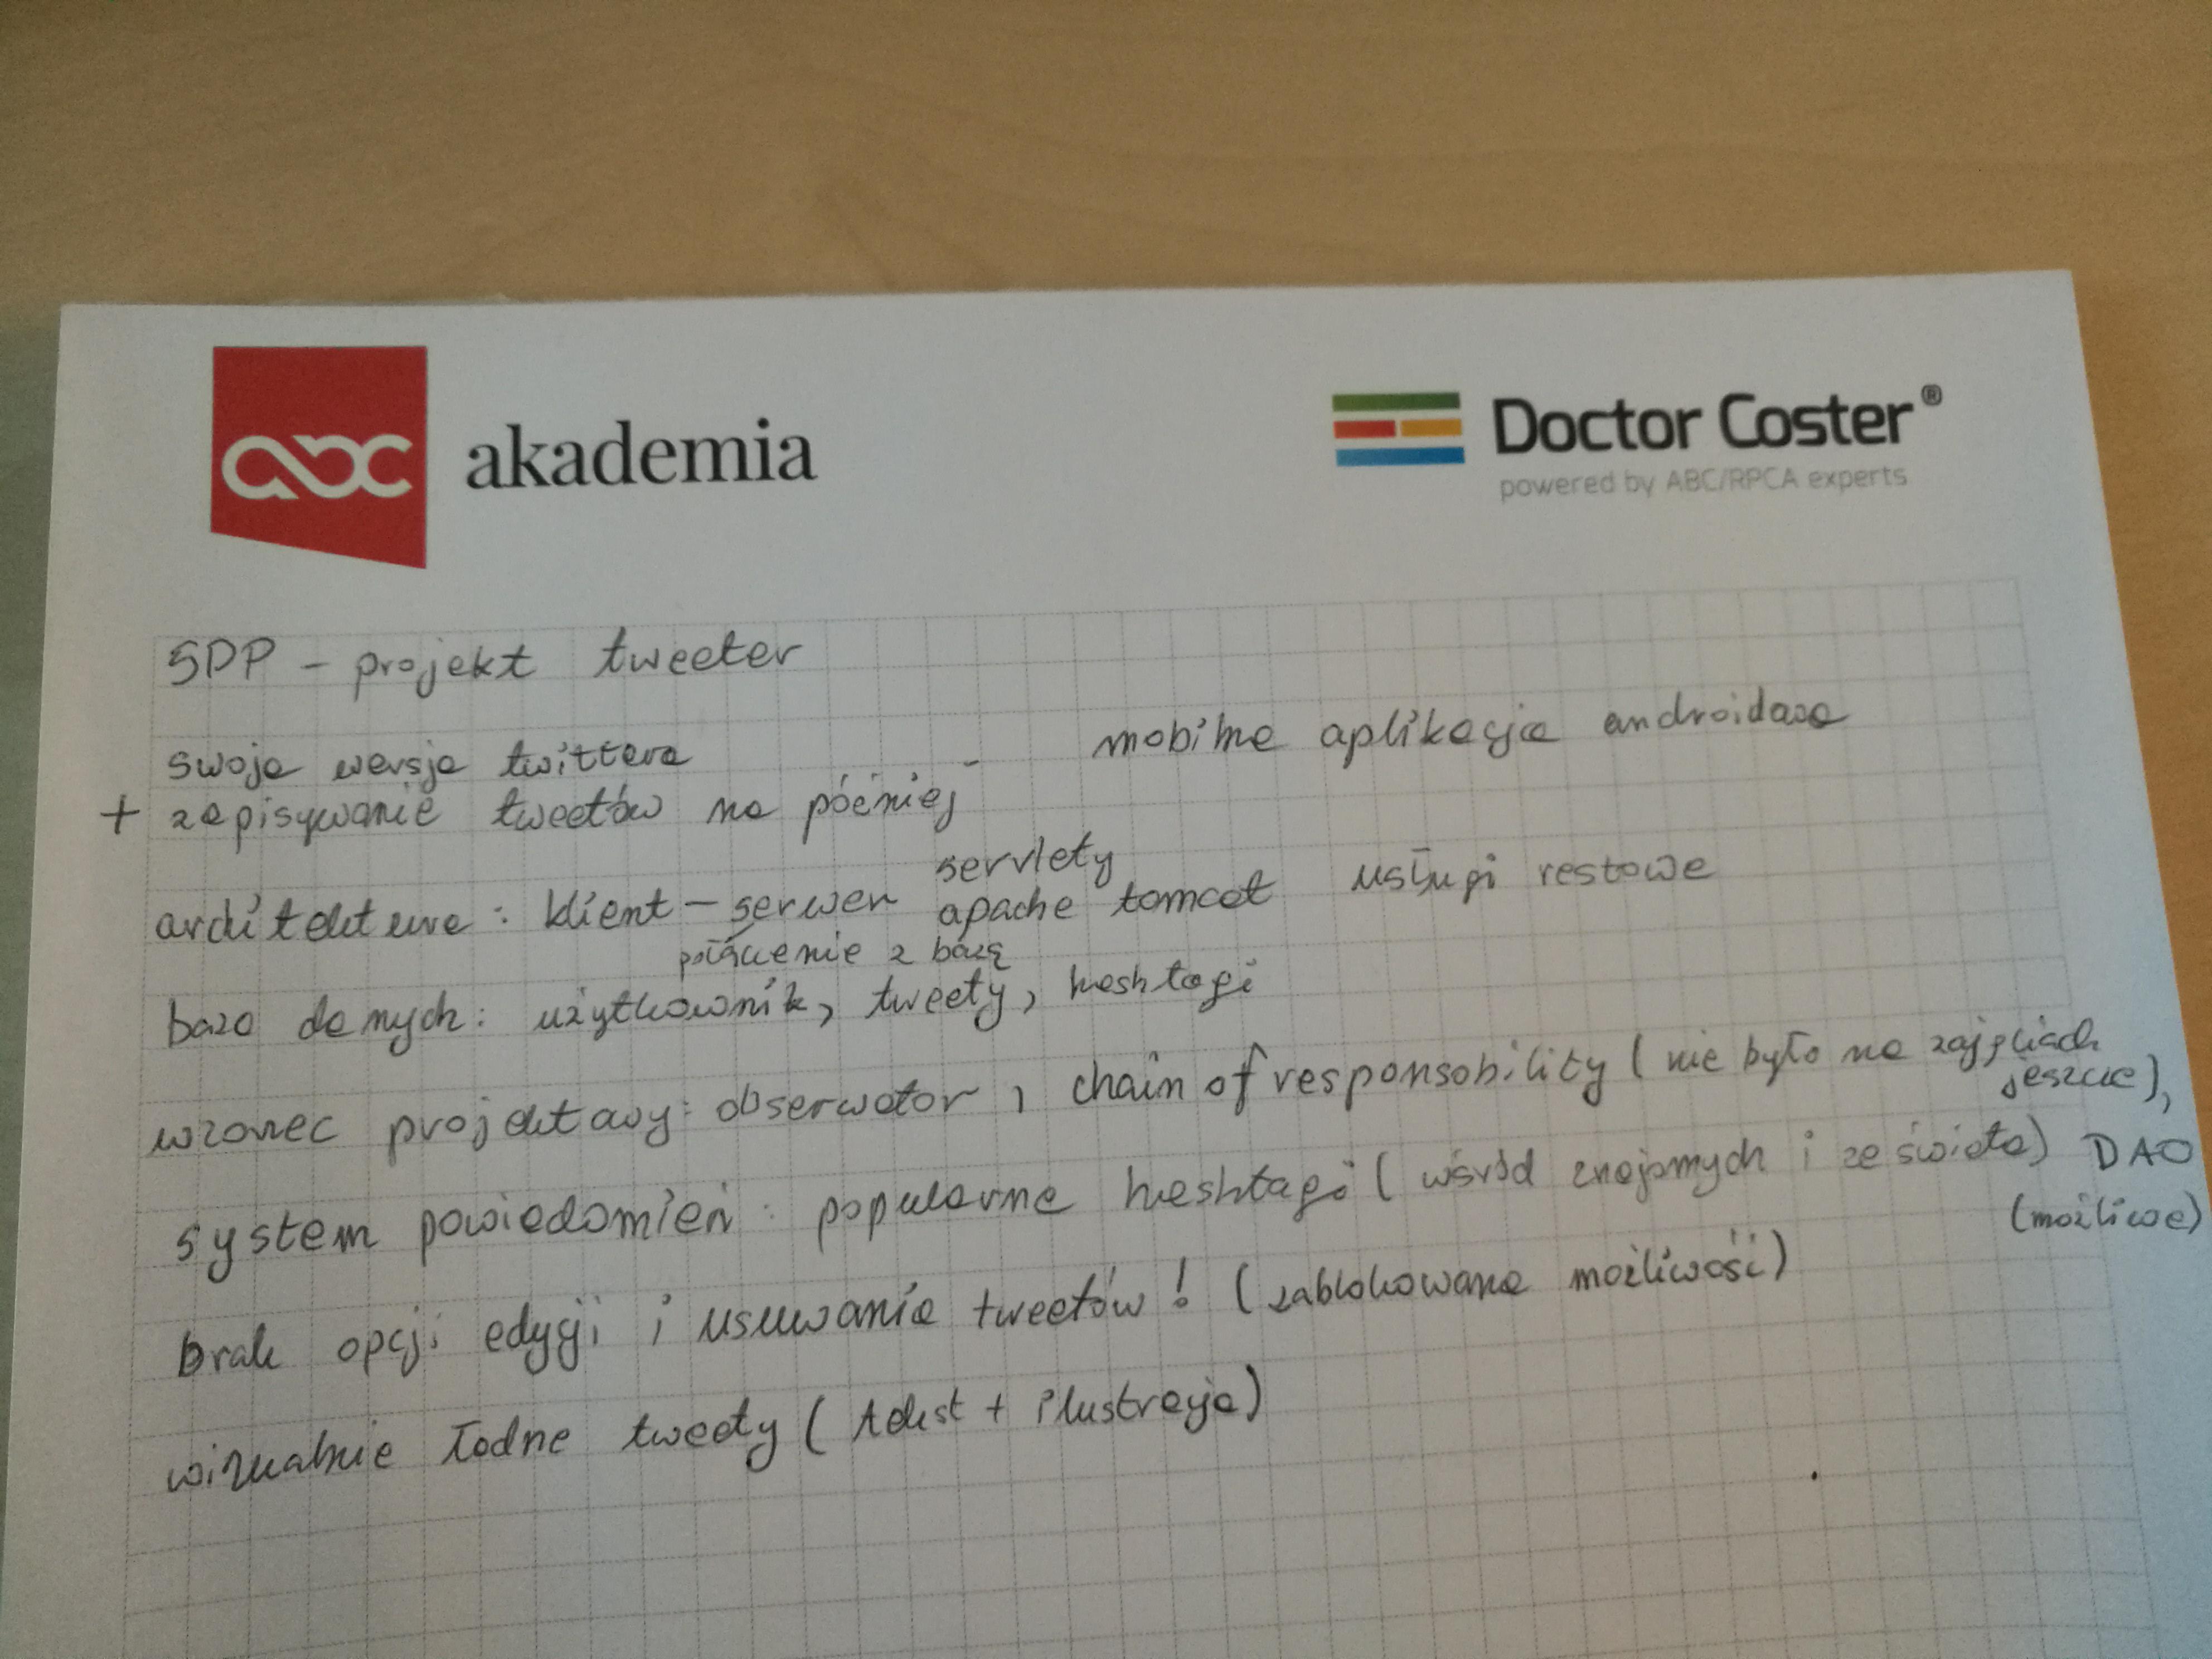 abc akademia
Doctor Coster®
powered by ABC/RPCA experts
SDP - projekt tweeter
swoja wersja twittera - mobilna aplikacja androidowa
+ zapisywanie tweetów na później
servlety
architektura: klient - serwer apache tomcat usługi restowe
połączenie z bazą
baza danych: użytkownik, tweety, hashtagi
wzorzec projektowy: obserwator, chain of responsobility (nie było na zajęciach
jeszcze),
system powiadomień: popularne hashtagi (wśród znajomych i ze świata) DAO
(możliwe)
brak opcji edycji i usuwania tweetów! (zablokowana możliwość)
wizualnie ładne tweety (tekst + ilustracja)